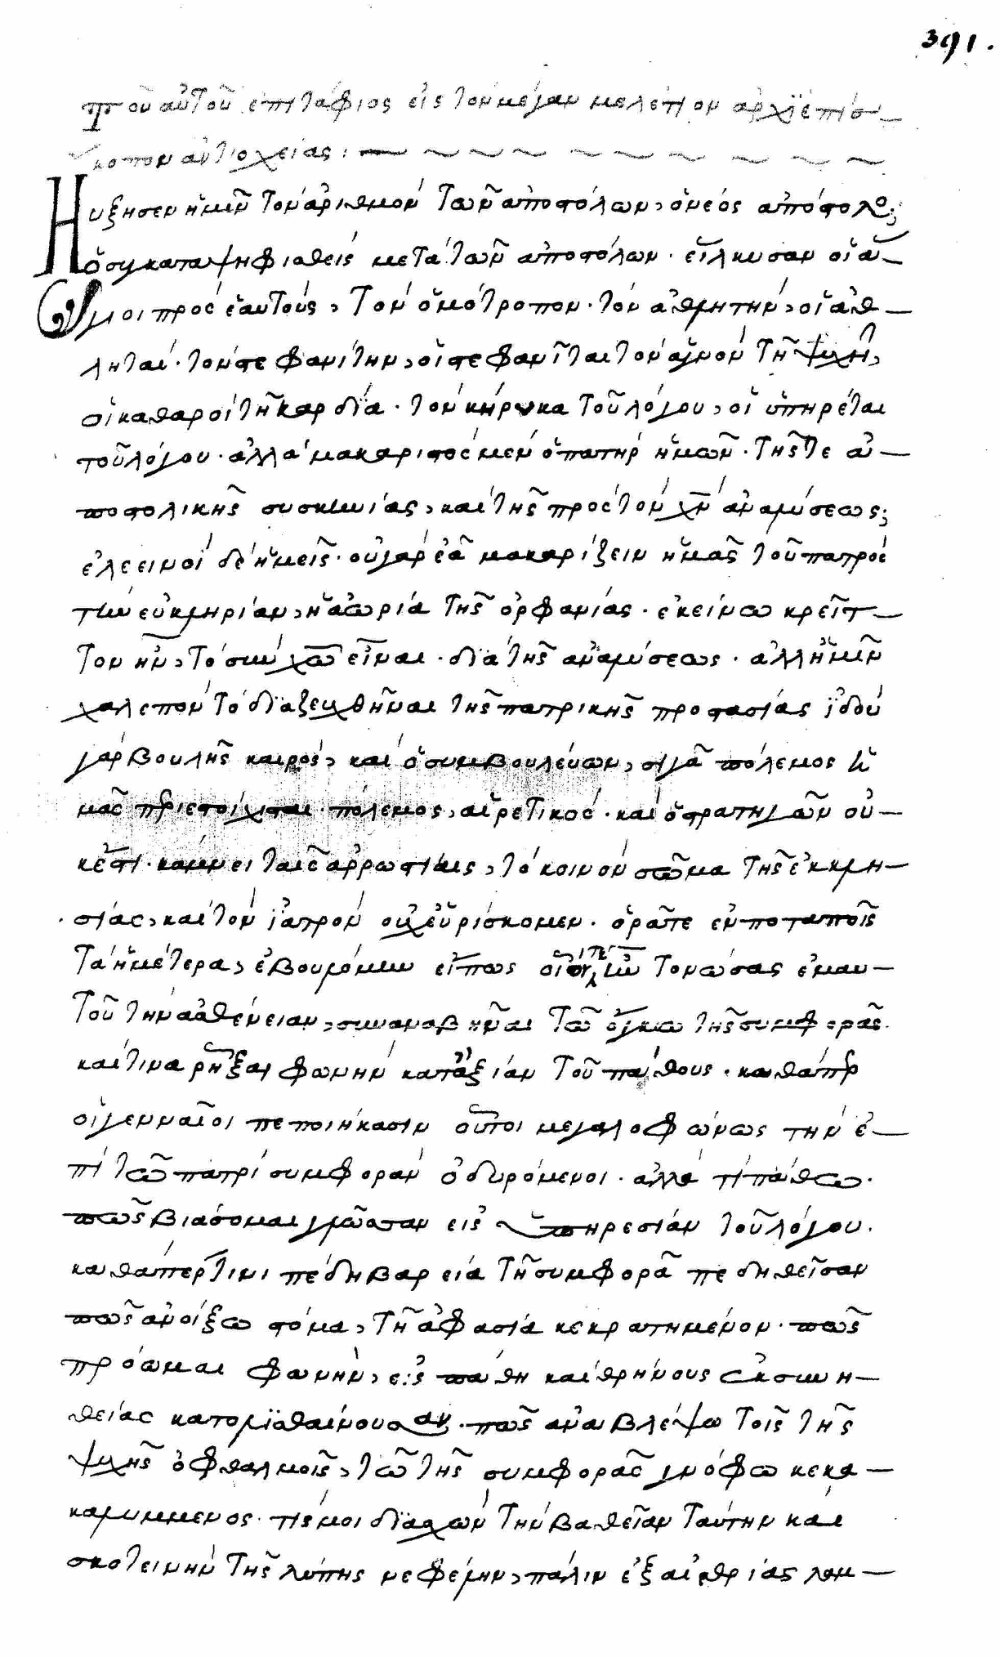 391.
Τοῦ αὐτοῦ ἐπιτάφιος εἰς τὸν μέγαν μελέτιον ἀρχϊεπίσ
κοπον ἀντιοχείας:
Ηὔξησεν ἡμῖν τὸν ἀριθμὸν τῶν ἀποστόλων, ὁ νέος ἀπόστολος,
ὁ συγκαταψηφισθεὶς μετὰ τῶν ἀποστόλων· εἵλκυσαν οἱ ἅ
γιοι πρὸς ἑαυτοὺς, τὸν ὁμότροπον· τὸν ἀθλητὴν, οἱ ἀθ
ληταί· τὸν στεφανίτην, οἱ στεφανῖται τὸν ἁγνὸν τῆ ψυχῆ,
οἱ καθαροὶ τῆ καρδία· τὸν κήρυκα τοῦ λόγου, οἱ ὑπηρέται
τοῦ λόγου· ἀλλὰ μακαριστὸς μὲν ὁ πατὴρ ἡμῶν· τῆς τε ἀ
ποστολικῆς συσκηνίας, καὶ τῆς πρὸς τὸν χν ἀναλύσεως;
ἐλεεινοὶ δὲ ἡμεῖς· οὐ γὰρ ἐᾶ μακαρίζειν ἡμᾶς τοῦ πατρὸς
τὴν εὐκληρίαν, ἡ ἀωρία τῆς ὀρφανίας· ἐκείνω κρεῖτ
τον ἦν, τὸ σὺν χω εἶναι· διὰ τῆς ἀναλύσεως· ἀλλ' ἡμῖν
χαλεπὸν τὸ διαζευχθῆναι τῆς πατρικῆς προστασίας ἰδοὺ
γὰρ βουλῆς καιρὸς, καὶ ὁ συμβουλεύων, σιγᾶ πόλεμος ἡ
μᾶς περιεστοίχισται πόλεμος, αἱρετικός· καὶ ὁ στρατηγῶν οὐ
κέστι· κάμνει ταῖς ἀρρωστίαις, τὸ κοινὸν σῶμα τῆς ἐκκλη
σίας, καὶ τὸν ἰατρὸν οὐχ εὑρίσκομεν· ὁρᾶτε ἐν ποταποῖς
τὰ ἡμέτερα, ἐβουλόμην εἴπως οἷόν τε ἦν τονώσας ἐμαυ
τοῦ τὴν ἀσθένειαν, συναναβῆναι τῶ ὄγκω τῆς συμφορᾶς.
καὶ τινα ῥῆξαι φωνὴν κατ' ἀξίαν τοῦ πάθους· καθάπερ
οἱ γενναῖοι πεποιήκασιν οὗτοι μεγαλοφώνως τὴν ἐ
πὶ τῶ πατρὶ συμφορὰν ὀδυρόμενοι· ἀλλὰ τί πάθω·
πῶς βιάσομαι γλῶσσαν εἰς ὑπηρεσίαν τοῦ λόγου.
καθάπερ τινι πέδη βαρεία τῆ συμφορᾶ πεδηθεῖσαν
πῶς ἀνοίξω στόμα, τῆ ἀφασία κεκρατημένον· πῶς
πρόωμαι φωνὴν, εἰς πάθη καὶ θρήνους ἐκ συνη
θείας κατολϊσθαίνουσαν· πῶς ἀναβλέψω τοῖς τῆς
ψυχῆς ὀφθαλμοῖς, τῶ τῆς συμφορᾶς γνόφω κεκα
καλυμμένος· τίς μοι διασχὼν τὴν βαθεῖαν ταύτην καὶ
σκοτεινὴν τῆς λύπης νεφέλην, πάλιν ἐξ αἰθρίας λαμ